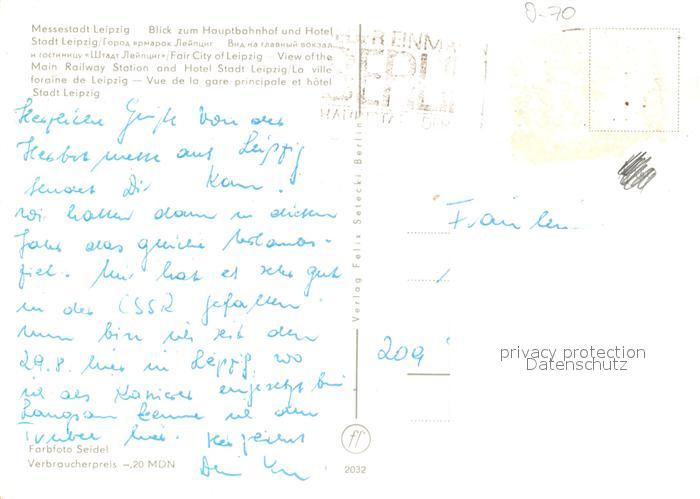 O-70
Messestadt Leipzig Blick zum Hauptbahnhof und Hotel
Stadt Leipzig/Город ярмарок Лейпциг Вид на главный вокзал
и гостиницу «Штадт Лейпциг»/Fair City of Leipzig View of the
Main Railway Station and Hotel Stadt Leipzig/La ville
foraine de Leipzig — Vue de la gare principale et hôtel
Stadt Leipzig
Herzliche Grüße von der
Herbstmesse aus Leipzig
sendet Dir
Wir hatten dann in diesem
Jahr das gleiche Urlaubs-
ziel. Mir hat es sehr gut
in der CSSR gefallen
nun bin ich seit dem
29.8. hier in Leipzig, wo
ich als Kassierer eingesetzt bin
Langsam kenne ich den
Trubel hier. Herzlichst
Dein
Farbfoto Seidel
Verbraucherpreis –,20 MDN
Verlag Felix Setecki Berlin
2032
Fräulein
209
privacy protection
Datenschutz